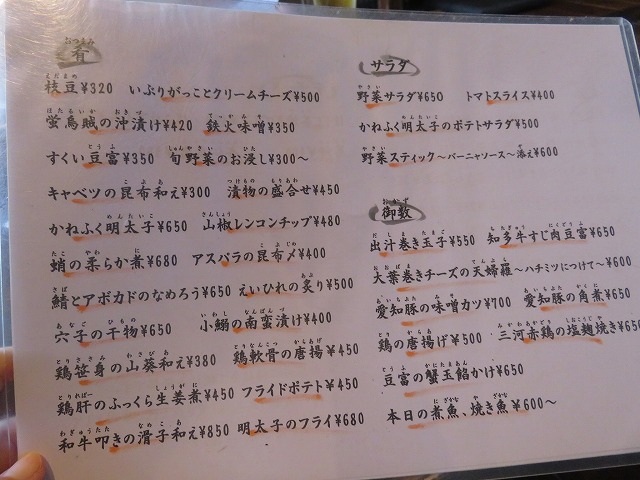 肴
枝豆¥320 いぶりがっことクリームチーズ¥500
蛍烏賊の沖漬け¥420 鉄火味噌¥350
すくい豆富¥350 旬野菜のお浸し¥300〜
キャベツの昆布和え¥300 漬物の盛合せ¥450
かねふく明太子¥650 山椒レンコンチップ¥480
蛸の柔らか煮¥680 アスパラの昆布〆¥400
鯖とアボカドのなめろう¥650 えいひれの炙り¥500
穴子の干物¥650 小鰯の南蛮漬け¥400
鶏笹身の山葵和え¥380 鶏軟骨の唐揚¥450
鶏肝のふっくら生姜煮¥450 フライドポテト¥450
和牛叩きの滑子和え¥850 明太子のフライ¥680
サラダ
野菜サラダ¥650 トマトスライス¥400
かねふく明太子のポテトサラダ¥500
野菜スティック〜バーニャソース〜添え¥600
御数
出汁巻き玉子¥550 知多牛すじ肉豆富¥650
大葉巻きチーズの天婦羅〜ハチミツにつけて〜¥600
愛知豚の味噌カツ¥700 愛知豚の角煮¥650
鶏の唐揚げ¥500 三河赤鶏の塩麹焼き¥650
豆富の蟹玉餡かけ¥650
本日の煮魚、焼き魚¥600〜